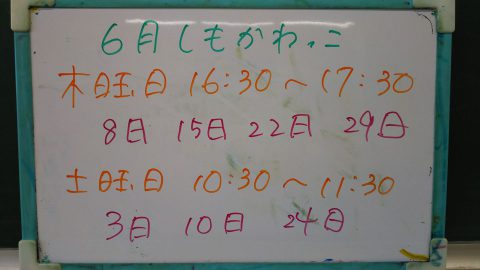 6月しもかわっこ
木曜日 16:30〜17:30
8日 15日 22日 29日
土曜日 10:30〜11:30
3日 10日 24日